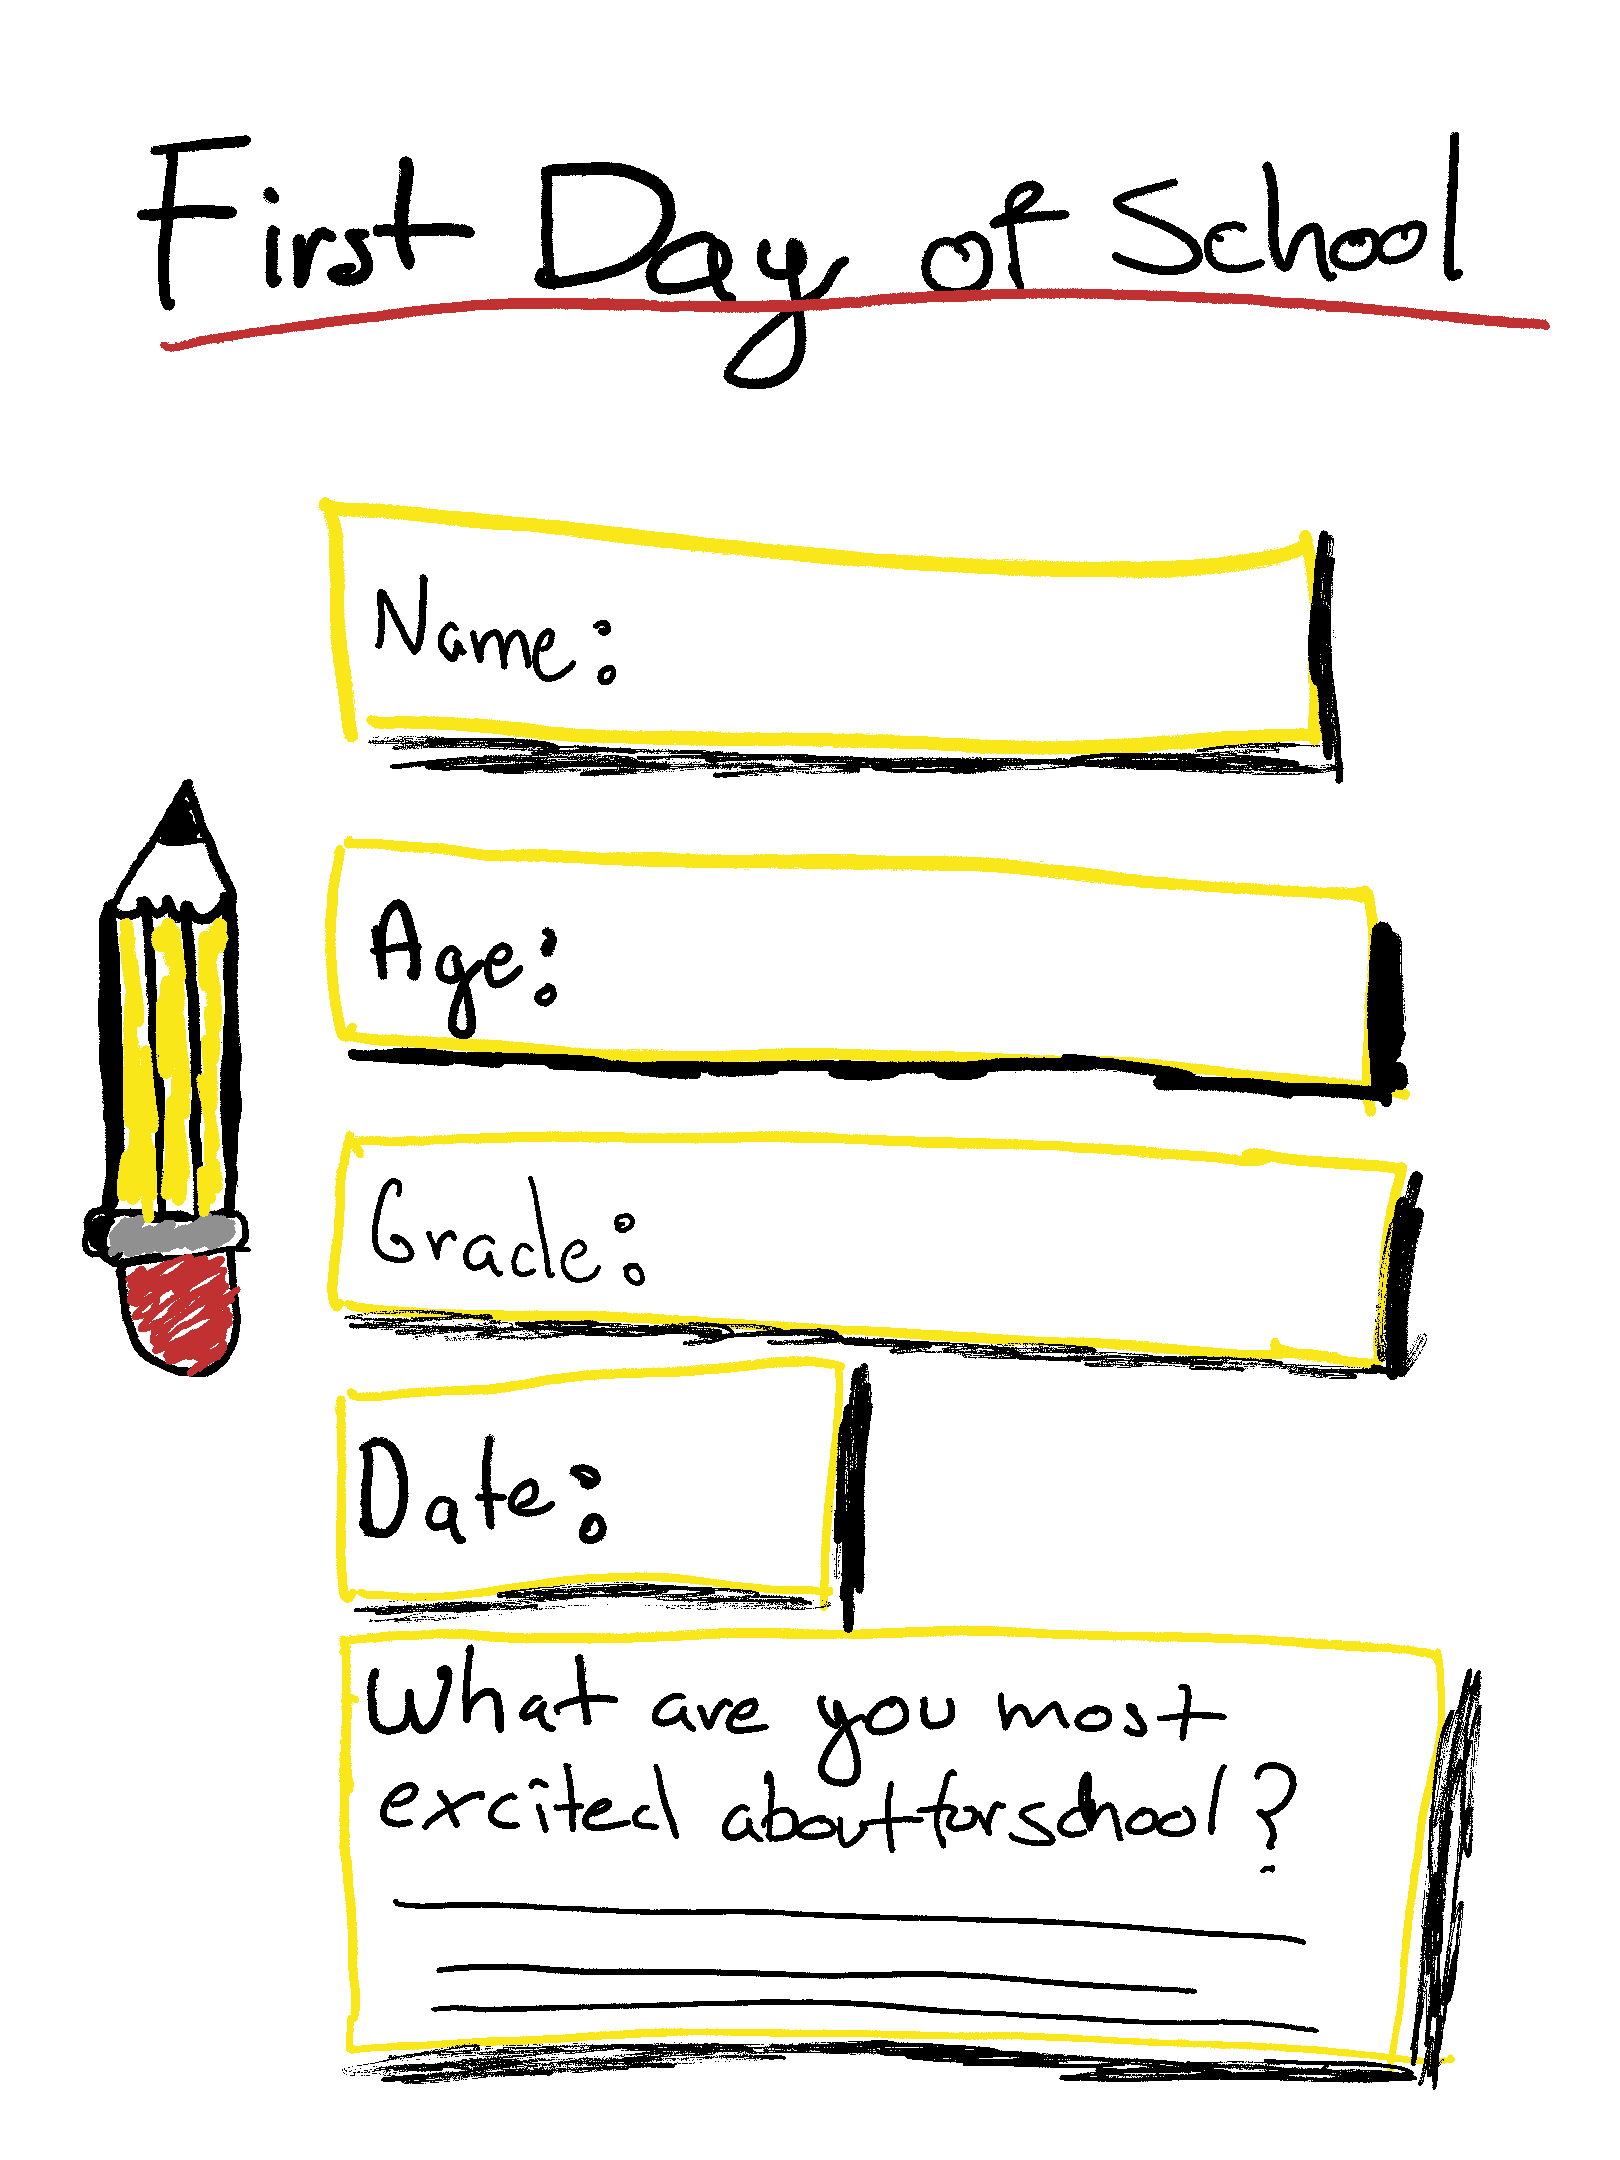 First Day of School
Name:
Age:
Grade:
Date:
What are you most
excited about for school?